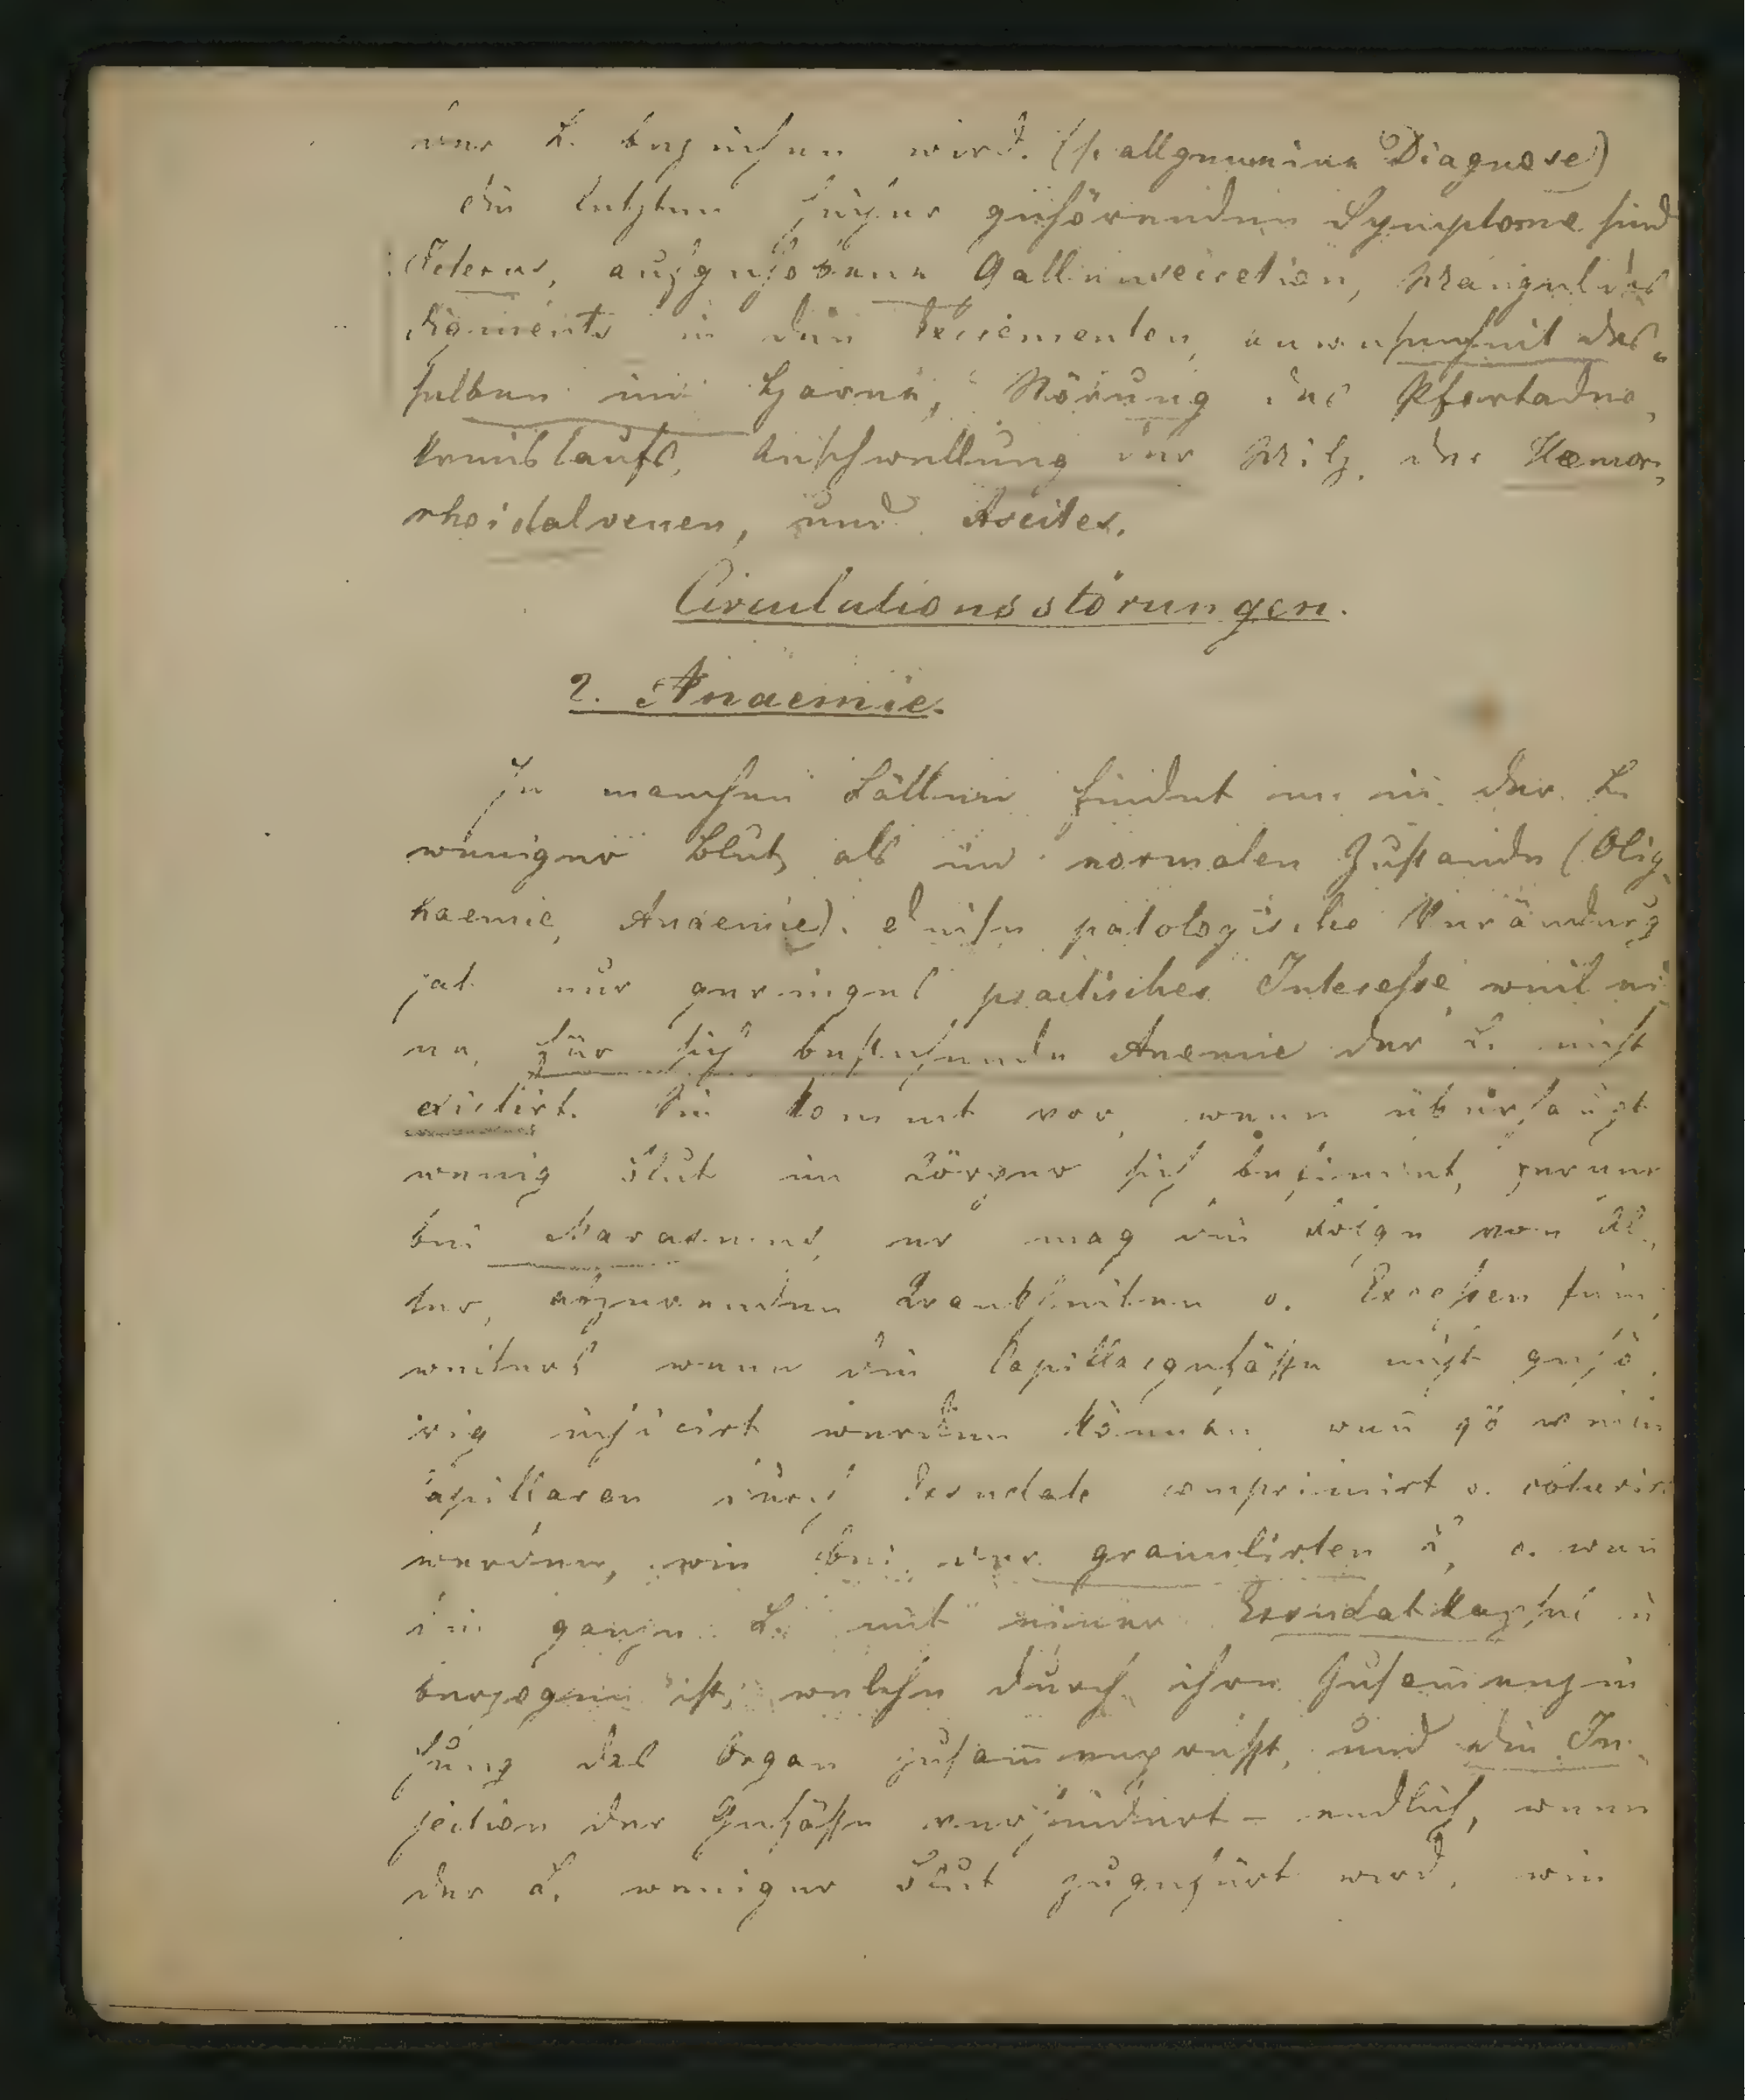 der L. bezeichen wird. (s. allgemeine Diagnose)
die letzten hieher gehörenden Symptome sind
Icterus, aufgehobene Gallensecretion, Mangel des
Pigments in den Excrementen, anwesenheit des„
selben im Harne, Störung des Pfortader„
kreislaufs, Anschwellung der Milz, der Hæmor„
rhoidalvenen, und Ascites.
Circulationsstörungen.
2. Anaemie.
In manchen Fällen findet man in der L.
weniger Blut als im normalen Zustande (Olig„
haemie, Anaemie). diese patologische Veränderg
hat nur geringes practisches Interesse weil ei
ne für sich bestehende Anemie der L. nicht
existirt. Sie kommt vor, wenn überhaupt
wenig Blut im Körper sich befindet, ferner
bei Marasmus, er mag die Folge von Al„
ter, zehrenden Krankheiten o. Excessen sein,
weiters wenn die Capillargefäße nicht gehö„
rig injicirt werden können, wen̅ größere
Capillaren durch Exsudate comprimirt o. obturirt
werden, wie bei der granulirten L, o. wen̅
die ganze L. mit einer Exsudatkapsel ü
berzogen ist, welche durch ihre Zusam̅enzie
hung das Organ zusam̅enpresst, und die In„
jection der Gefäße verhindert – endlich, wenn
der L. weniger Blut zugeführt wird, wie